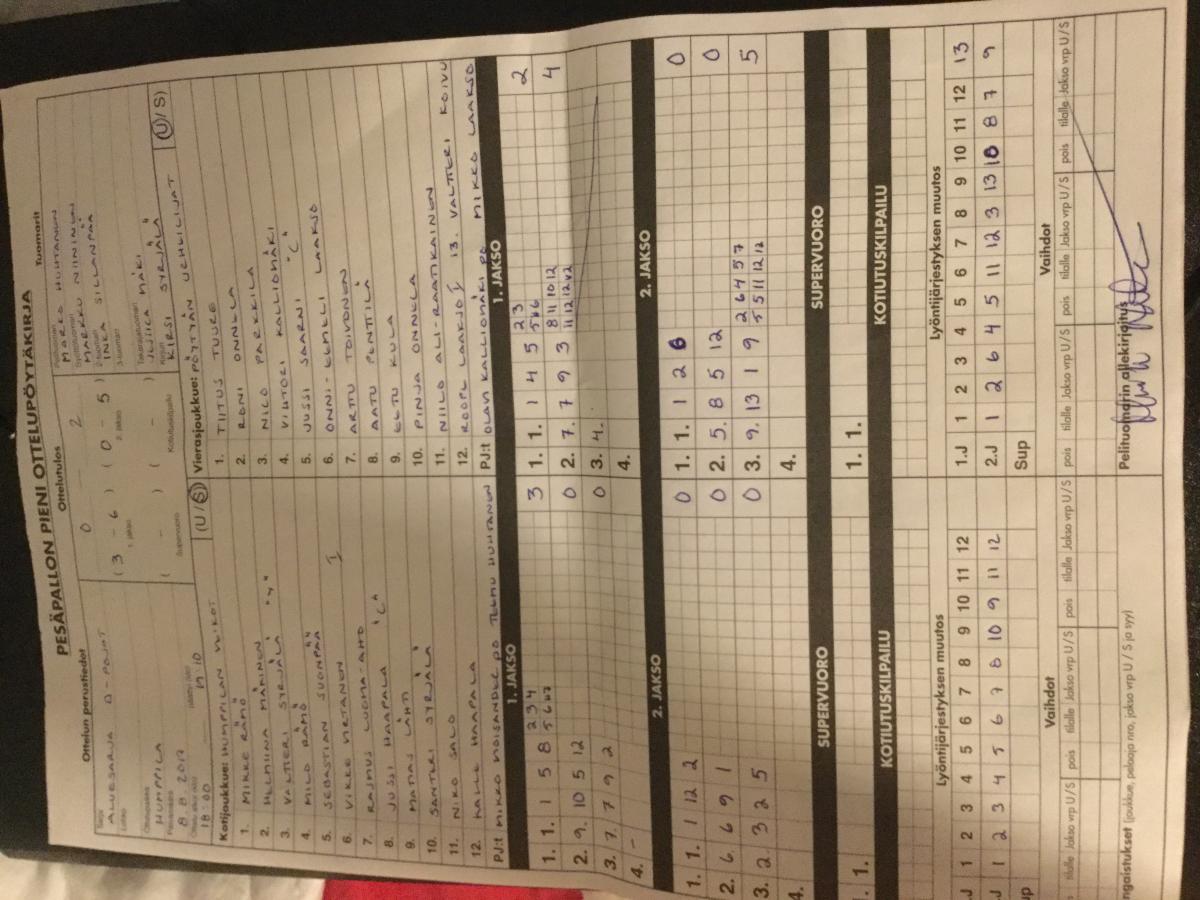 PESÄPALLON PIENI OTTELUPÖYTÄKIRJA
Ottelun perustiedot
Ottelutulos
Tuomarit
Sarja
ALUESARJA D-POJAT
Lohko
HUMPPILA
8.8.2017
18:00
19:10
0 - 2
( 3 - 6 ) ( 0 - 5 )
1. jakso 2. jakso
( - ) ( - )
Supervuoro Kotiutuskilpailu
Pelituomari
MARKO HUHTANEN
Syöttötuomari
MARKKU NIININEN
2-tuomari
INKA SILLANPÄÄ
3-tuomari
Takarajatuomari
MÄKI
Kirjuri
KIRSI SYRJÄLÄ
Kotijoukkue: HUMPPILAN VEIKOT (U/S)
1. MIKKE RÄMÖ
2. HELMIINA MÄKINEN
3. VALTTERI SYRJÄLÄ
4. MILO RÄMÖ
5. SEBASTIAN SUONPÄÄ
6. VIKKE VIRTANEN I
7. RASMUS LUOMA-AHO
8. JUSSI HAAPALA "C"
9. MATIAS LAHTI
10. SANTERI SYRJÄLÄ
11. NIKO SALO
12. KALLE HAAPALA
PJ:t MIKKO MOISANDER PO TEEMU HUHTANEN
Vierasjoukkue: PÖYTYÄN URHEILIJAT (U/S)
1. TIITUS TUURE
2. RONI ONNELA
3. NILO PARKKILA
4. VIHTORI KALLIOMÄKI "C"
5. JUSSI SAARNI
6. ONNI-EEMELI LAAKSO
7. ARTTU TOIVONEN
8. AATU PENTTILÄ
9. EETU KULA
10. PINJA ONNELA
11. NIILO ALI-RAATIKAINEN
12. ROOPE LAAKSO I 13. VALTTERI KOIVU
PJ:t OLAVI KALLIOMÄKI PO MIKKO LAAKSO
1. JAKSO
1. 1. 1 5 8 2 3 4 5 6 6 7 3
2. 9. 10 5 12 0
3. 7. 7 9 2 0
4. -
1. JAKSO
1. 1. 1 4 5 2 3 5 6 2
2. 7. 7 9 3 8 11 10 12 11 12 12 12 4
3. 4.
4.
2. JAKSO
1. 1. 1 12 2 0
2. 6. 6 9 1 0
3. 2. 3 2 5 0
4.
2. JAKSO
1. 1. 1 2 6 0
2. 5. 8 5 12 0
3. 9. 13 1 9 2 6 4 5 7 5 5 11 12 12 5
4.
SUPERVUORO
1. 1.
SUPERVUORO
1. 1.
KOTIUTUSKILPAILU
KOTIUTUSKILPAILU
Lyöntijärjestyksen muutos
.J 1 2 3 4 5 6 7 8 9 10 11 12
.J 1 2 3 4 5 6 7 8 10 9 11 12
up
Lyöntijärjestyksen muutos
1.J 1 2 3 4 5 6 7 8 9 10 11 12 13
2.J 1 2 6 4 5 11 12 3 13 10 8 7 9
Sup
Vaihdot
tilalle Jakso vrp U/S pois tilalle Jakso vrp U/S pois tilalle Jakso vrp U/S
Vaihdot
pois tilalle Jakso vrp U/S pois tilalle Jakso vrp U/S pois tilalle Jakso vrp U/S
ngaistukset (joukkue, pelaaja nro, jakso vrp U / S ja syy)
Pelituomarin allekirjoitus